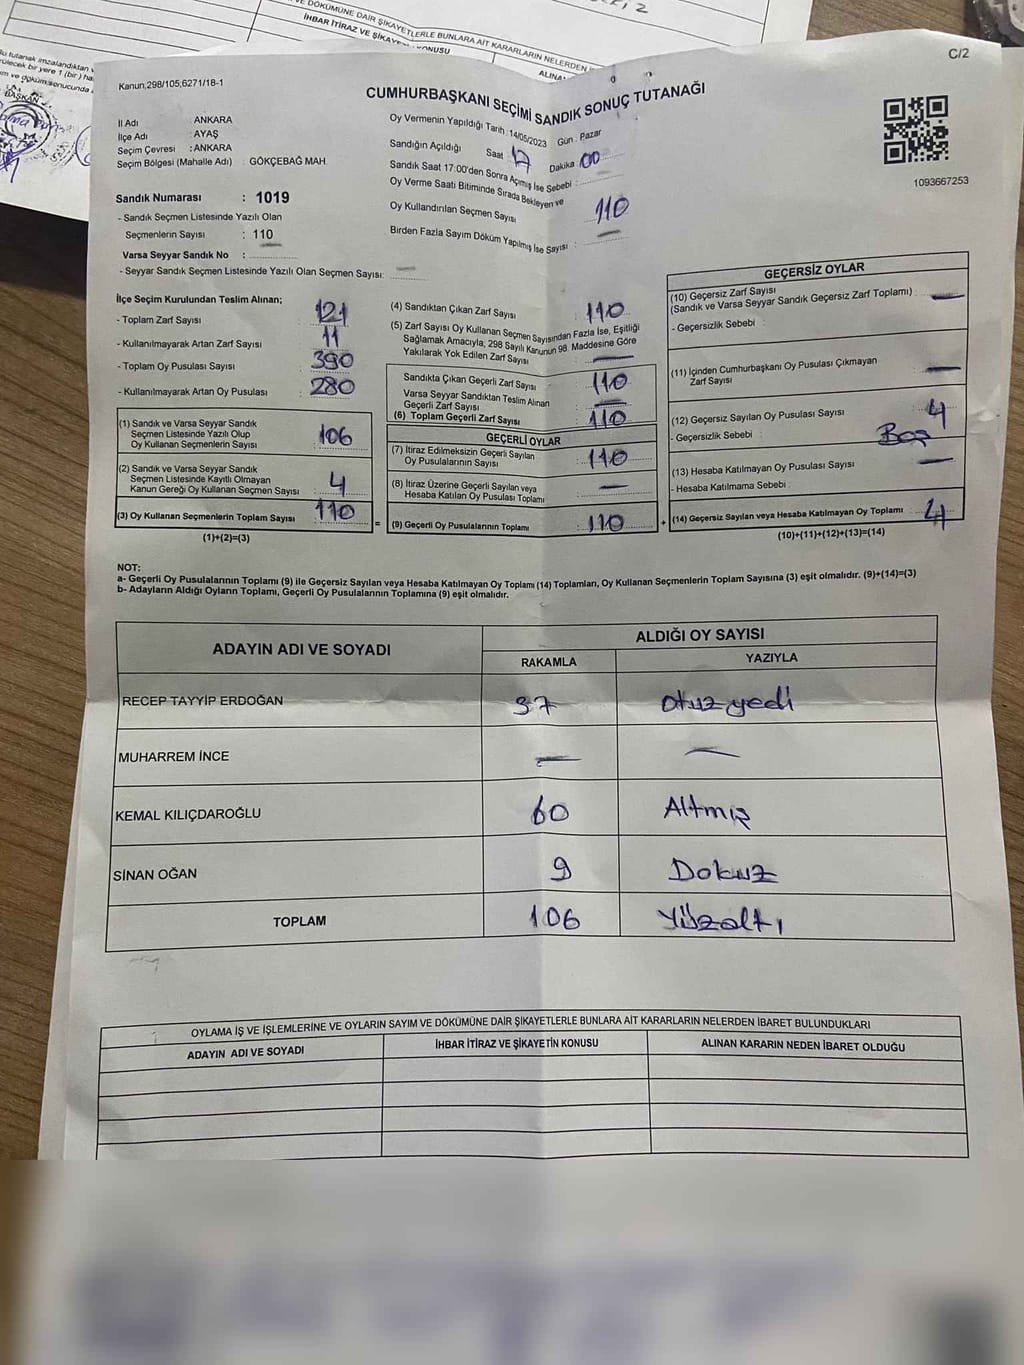 VE DÖKÜMÜNE DAİR ŞİKAYETLERLE BUNLARA AİT KARARLARIN NELERDEN
İHBAR İTİRAZ VE ŞİKAYETİN KONUSU
BAŞKAN
C/2
Kanun,298/105,6271/18-1
CUMHURBAŞKANI SEÇİMİ SANDIK SONUÇ TUTANAĞI
1093667253
İl Adı ANKARA
İlçe Adı AYAŞ
Seçim Çevresi : ANKARA
Seçim Bölgesi (Mahalle Adı) : GÖKÇEBAĞ MAH.
Sandık Numarası : 1019
- Sandık Seçmen Listesinde Yazılı Olan
Seçmenlerin Sayısı : 110
Varsa Seyyar Sandık No :
- Seyyar Sandık Seçmen Listesinde Yazılı Olan Seçmen Sayısı: —
Oy Vermenin Yapıldığı Tarih : 14/05/2023 Gün : Pazar
Sandığın Açıldığı Saat 17 Dakika 00
Sandık Saat 17:00'den Sonra Açmış İse Sebebi :
Oy Verme Saati Bitiminde Sırada Bekleyen ve
Oy Kullandırılan Seçmen Sayısı 110
Birden Fazla Sayım Döküm Yapılmış İse Sayısı : —
İlçe Seçim Kurulundan Teslim Alınan;
- Toplam Zarf Sayısı : 121
- Kullanılmayarak Artan Zarf Sayısı : 11
- Toplam Oy Pusulası Sayısı : 390
- Kullanılmayarak Artan Oy Pusulası : 280
(1) Sandık ve Varsa Seyyar Sandık
Seçmen Listesinde Yazılı Olup
Oy Kullanan Seçmenlerin Sayısı : 106
(2) Sandık ve Varsa Seyyar Sandık
Seçmen Listesinde Kayıtlı Olmayan
Kanun Gereği Oy Kullanan Seçmen Sayısı : 4
(3) Oy Kullanan Seçmenlerin Toplam Sayısı : 110
(1)+(2)=(3)
(4) Sandıktan Çıkan Zarf Sayısı : 110
(5) Zarf Sayısı Oy Kullanan Seçmen Sayısından Fazla İse, Eşitliği
Sağlamak Amacıyla; 298 Sayılı Kanunun 98. Maddesine Göre
Yakılarak Yok Edilen Zarf Sayısı —
Sandıkta Çıkan Geçerli Zarf Sayısı : 110
Varsa Seyyar Sandıktan Teslim Alınan
Geçerli Zarf Sayısı : —
(6) Toplam Geçerli Zarf Sayısı : 110
GEÇERLİ OYLAR
(7) İtiraz Edilmeksizin Geçerli Sayılan
Oy Pusulalarının Sayısı : 110
(8) İtiraz Üzerine Geçerli Sayılan veya
Hesaba Katılan Oy Pusulası Toplamı : —
= (9) Geçerli Oy Pusulalarının Toplamı : 110 +
GEÇERSİZ OYLAR
(10) Geçersiz Zarf Sayısı
(Sandık ve Varsa Seyyar Sandık Geçersiz Zarf Toplamı) : —
- Geçersizlik Sebebi :
(11) İçinden Cumhurbaşkanı Oy Pusulası Çıkmayan
Zarf Sayısı : —
(12) Geçersiz Sayılan Oy Pusulası Sayısı : 4
- Geçersizlik Sebebi : Boş
(13) Hesaba Katılmayan Oy Pusulası Sayısı : —
- Hesaba Katılmama Sebebi :
(14) Geçersiz Sayılan veya Hesaba Katılmayan Oy Toplamı : 4
(10)+(11)+(12)+(13)=(14)
NOT:
a- Geçerli Oy Pusulalarının Toplamı (9) ile Geçersiz Sayılan veya Hesaba Katılmayan Oy Toplamı (14) Toplamları, Oy Kullanan Seçmenlerin Toplam Sayısına (3) eşit olmalıdır. (9)+(14)=(3)
b- Adayların Aldığı Oyların Toplamı, Geçerli Oy Pusulalarının Toplamına (9) eşit olmalıdır.
ADAYIN ADI VE SOYADI ALDIĞI OY SAYISI
RAKAMLA YAZIYLA
RECEP TAYYİP ERDOĞAN 37 otuzyedi
MUHARREM İNCE — —
KEMAL KILIÇDAROĞLU 60 Altmış
SİNAN OĞAN 9 Dokuz
TOPLAM 106 Yüzaltı
OYLAMA İŞ VE İŞLEMLERİNE VE OYLARIN SAYIM VE DÖKÜMÜNE DAİR ŞİKAYETLERLE BUNLARA AİT KARARLARIN NELERDEN İBARET BULUNDUKLARI
ADAYIN ADI VE SOYADI İHBAR İTİRAZ VE ŞİKAYETİN KONUSU ALINAN KARARIN NEDEN İBARET OLDUĞU